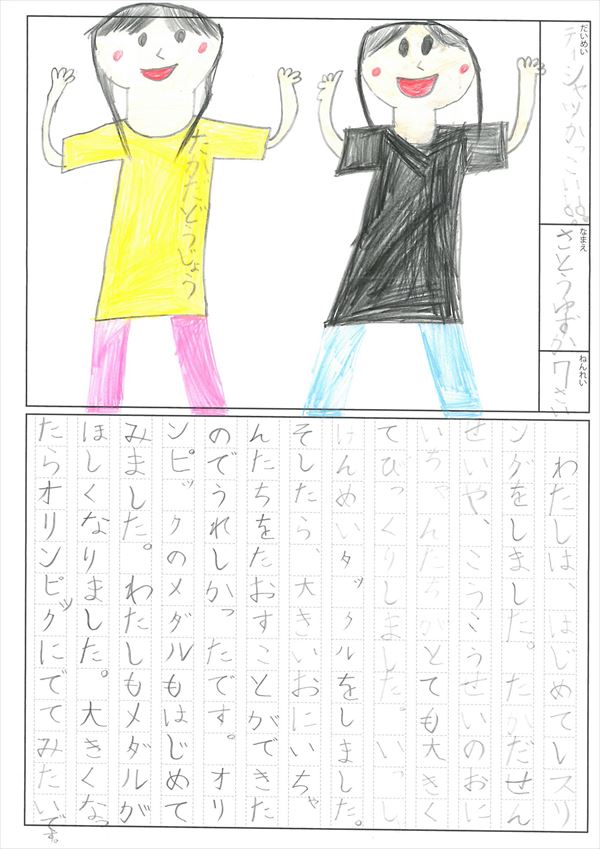 だいめい
ティーシャツかっこいい。
なまえ
さとうゆずか
ねんれい
7さい
たかだどうじょう
わたしは　はじめてレスリ
ングをしました。たかだせん
せいや、こうこうせいのおに
いちゃんたちがとても大きく
てびっくりしました。いっし
けんめいタックルをしました。
そしたら、大きいおにいちゃ
んたちをたおすことができた
のでうれしかったです。オリ
ンピックのメダルもはじめて
みました。わたしもメダルが
ほしくなりました。大きくなっ
たらオリンピックにでてみたいです。